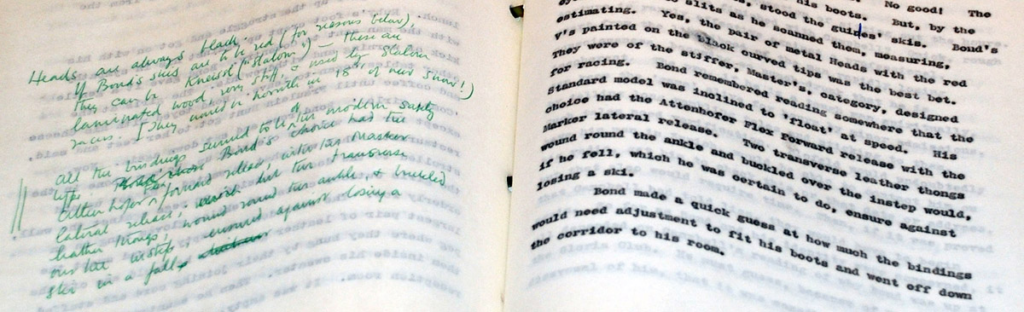 Heads are always black.
If Bond's skis are to be red (for reasons below),
they can be Kneissl ("Slalom") — these are
laminated wood, very stiff, used by slalom
racers. [They would be horrible in 18" of new snow!]
All the bindings seemed to be of the modern safety
type. Bond's choice had the
forward release, with the Marker
lateral release, but two transverse
leather thongs, wound round the ankle, & buckled
over the instep ensured against losing a
ski in a fall
his boots. No good! The
stood the guides' skis. But, by the
slits as he scanned them, measuring,
estimating. Yes, the pair of metal Heads with the red
V's painted on the black curved tips was the best bet.
They were of the stiffer, Master's, category, designed
for racing. Bond remembered reading somewhere that the
Standard model was inclined to 'float' at speed. His
choice had the Attenhofer Flex forward release with the
Marker lateral release. Two transverse leather thongs
wound round the ankle and buckled over the instep would,
if he fell, which he was certain to do, ensure against
losing a ski.
Bond made a quick guess at how much the bindings
would need adjustment to fit his boots and went off down
the corridor to his room.